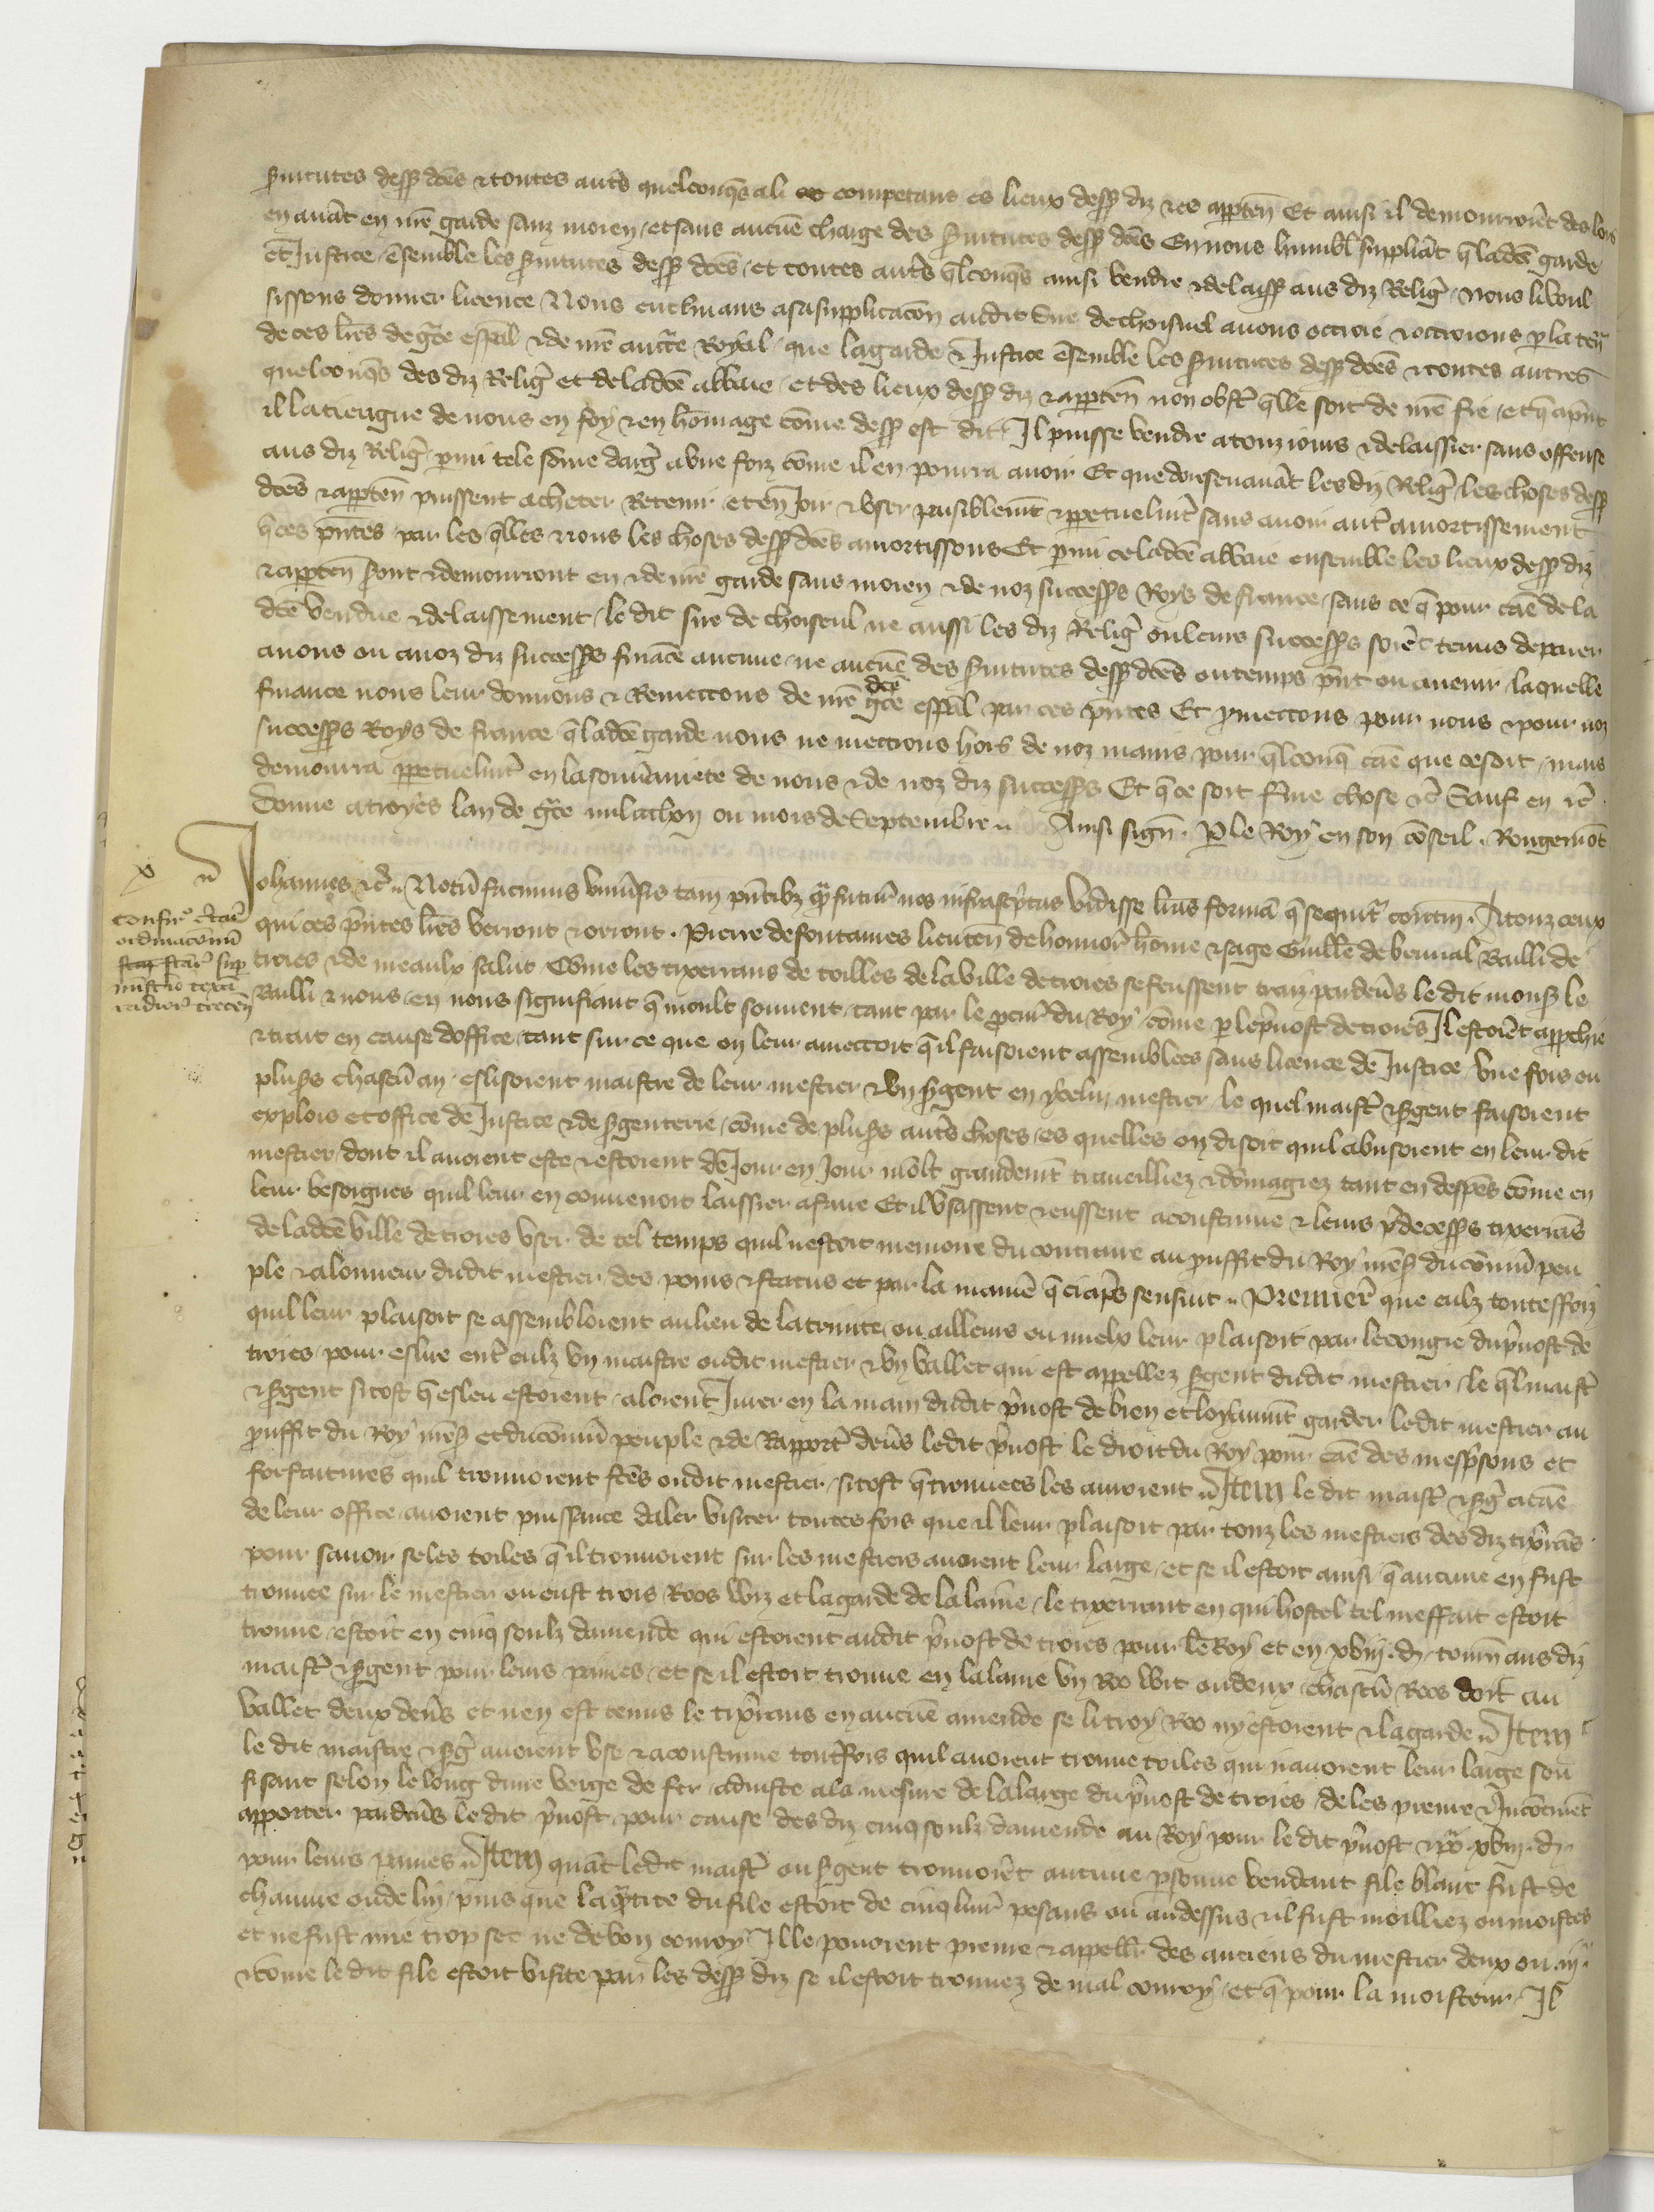 seruitutes dessus dcēs et toutes autres quelconques a li competans es lieux dessus diz et es apparten Et ainsi il demourroiēt des lors
en auāt en nrē garde sanz moien et sans aucunē charge des seruitutes dessus dcēs En nous humbl suppliāt q̄ ladcē garde
et Justice ēsemble les seruitutes dessus dcēs et toutes autres qlconqs ainsi vendre et delaissier aus diz Relig̃ nous li voul
sissons donner licence Nous enclinans a sa supplicacōn audit Sire de choiseul auons octroie et octroions p la ten
de ces lrēs de gcē espāl et de nrē auctē Royal que la garde et Justice ēsemble les seruitutes dessus dcēs et toutes autres
quelconqs des diz Relig̃ et de ladcē abbaie et des lieux dessus diz et apparten non obst qlle soit de nrē fie et q̄ apnt
il la tiengne de nous en foy et en hōmage cōme dessus est dit Il puisse vendre a touz iours et delaissier sans offense
aus diz Relig̃ pmi tele sōme darg̃ a vne foiz cōme il en pourra auoir Et que doresenauāt les diz Relig̃ les choses dessus
dcēs et apparten puissent acheter Retenir et en Joir et vser paisiblemt et ppetuelmt sans auoir autr amortissement
q̄ ces pntes par les qlles nous les choses dessus dcēs amortissons Et pmi ce ladcē abbaie ensemble les lieux dessus diz
et apparten seront et demourront en et de nrē garde sans moien et de noz successrs Roys de france sans ce q̄ pour caē de la
dcē vendue et delaissement le dit sire de choiseul ne aussi les diz Relig̃ ou leurs successrs soiēt tenus de paier
a nous ou a noz diz successrs finācē aucune ne aucunē des seruitutes dessus dcēs ou temps pnt ou auenir laquelle
finance nous leur donnons et Remettons de nrē dcē gcē espāl par ces pntes Et pmettons pour nous et pour noz
successrs Roys de france q̄ ladcē garde nous ne mettrons hors de noz mains pour qlconq̄ caē que ce soit mais
demourra ppetuelmt en la souuerainete de nous et de noz diz successrs Et q̄ ce soit ferme chose etc Sauf en etc
Donne a troyes lan de gcē mil ccc lxij ou mois de Septembre Ainsi sign. P le Roy en son cōseil. Rougemōt
Johannes etc Notū facimus vniūsis tam pntibz q̄ futuris nos infrascptas vidisse lrās formā q̄ sequitr contin. A touz ceux
qui ces pntes lrēs verront et orront. Pierre de fontaines lieuten de honnor hōme et sage Guillē de bruual Bailli de
troies et de meaulx salut Cōme les tixerrans de toilles de la ville de troies se feussent traiz par deūs le dit mons le
Bailli et nous en nous signifiant q̄ moult souuent tant par le pcur du Roy cōme p le puost de troies Il estoiēt approchie
et trait en cause doffice tant sur ce que on leur amettoit q̄ il faisoient assemblees sans licence de Justice vne fois ou
pluss chascū an eslisoient maistre de leur mestier et vn sergent en ycelui mestier le quel maistr et sergent faisoient
explois et office de Justice et de sergenterie cōme de pluss autrs choses es quelles on disoit quil abusoient en leur dit
mestier dont il auoient este et estoient de Jour en Jour mōlt grandemt trauailliez et dōmagiez tant en despēs cōme en
leur besoignes quil leur en conuenoit laissier a faire Et il vsassent et eussent acoustume et leurs pdecessrs tixerrās
de ladcē ville de troies vser de tel temps quil nestoit memoire du contraire au prouffit du Roy mēs du cōmū peu
ple et a lonneur dudit mestier des poins et status et par la maniē q̄ ci aprs sensuit Premier que eulz toutesfoiz
quil leur plaisoit se assembloient au lieu de la trinite ou ailleurs ou miex leur plaisoit par le congie du puost de
troies pour eslire entr eulz vn maistre oudit mestier et vn vallet qui est appellez sergent dudit mestier le ql maistr
et sergent si tost q̄ esleu estoient aloient Jurer en la main dudit puost de bien et loyaumt garder ledit mestier au
prouffit du Roy mēs et du cōmū peuple et de Rapporter deūs ledit puost le droit du Roy pour caē des mespsons et
forfaitures quil trouuoient fcēs oudit mestier si tost q̄ trouuees les auroient Item le dit maistr et serg̃ a caē
de leur office auoient puissance daler visiter toutes fois que il leur plaisoit par touz les mestiers des diz tixrrās
pour sauoir se les toiles q̄ il trouuoient sur les mestiers auoient leur large et se il estoit ainsi q̄ aucune en fust
trouuee sur le mestier ou eust trois Roos wiz et la garde de la laine le tixerrant en qui hostel tel meffait estoit
trouue estoit en cinq soulz damende qui estoient audit puost de troies pour le Roy et en xviij. d. tourn aus diz
maistr et sergent pour leurs paines et se il estoit trouue en la laine vn Roo wit ou deux chascū Roos doit au
vallet deux deūs et nen est tenus le tixrrans en aucunē amende se li troy Roo ny estoient et la garde Item
le dit maistre et serg̃ auoient vse et acoustume toutfois quil auoient trouue toiles qui nauoient leur large souf
fisant selon le long dune verge de fer adiuste a la mesure de la large du puost de troies de les prenre et Incōtinēt
apporter par deūs le dit puost pour cause des diz cinq soulz damende au Roy pour le dit puost et po. xviij. d.
pour leurs paines Item quāt ledit maistr ou sergent trouuoiēt aucune psonne vendant file blanc fust de
chanue ou de lin puis que la qtite du file estoit de cinq liur pesans ou au dessus et il fust moilliez ou moistes
et ne fust mie trop sec ne de bon conroy Il le pouoient prenre et appeller des anciens du mestier deux ou iij.
et cōme le dit file estoit visite par les dessus diz se il estoit trouuez de mal conroy et q̄ pour la moisteur Il